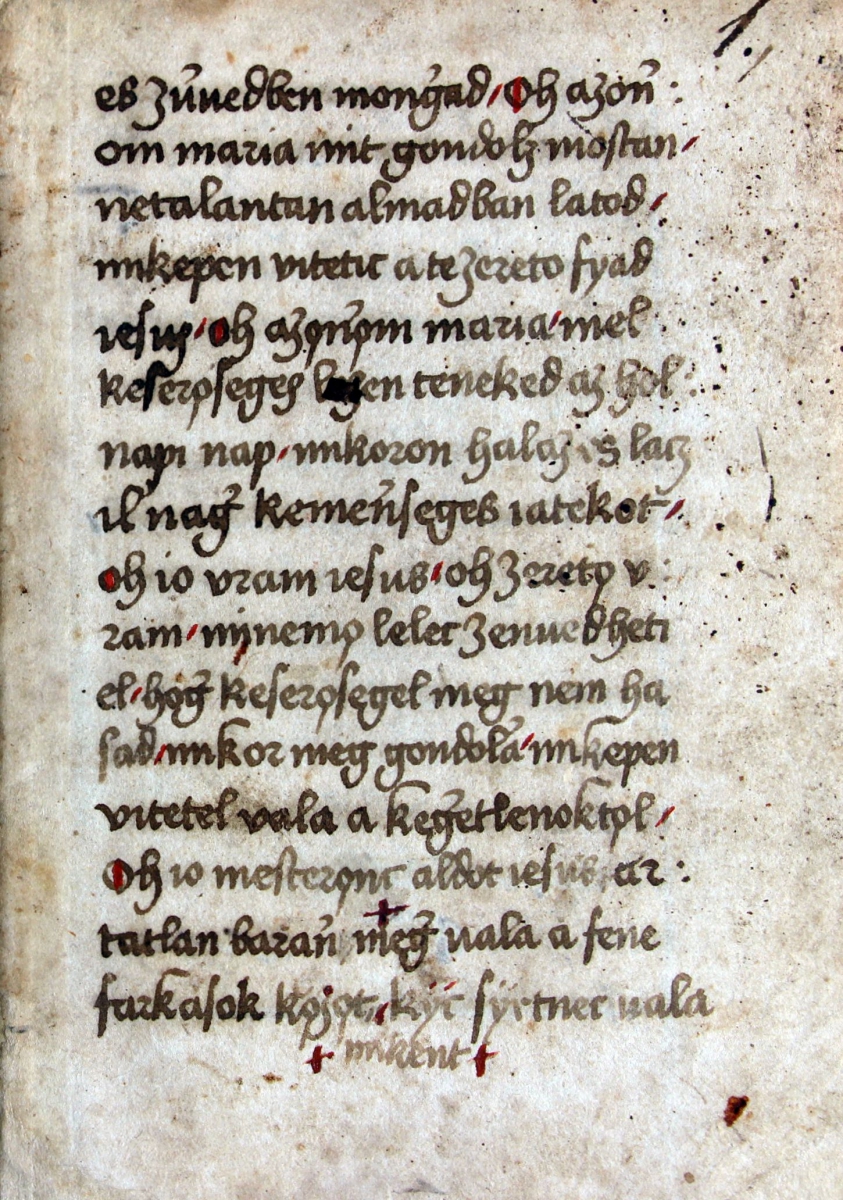 es zu̇uedben mong̃ad / Oh azon̄ :
om maria mit gondolz mostan /
netalantan almadban latod /
mikepen vitetic a te zereto fyad
iesus / Oh azonom maria / mel
keserǫseges lezen teneked az hol :
napi nap / mikoron halaz es lacz
il nag̃ kemen̄seges iatekot /
Oh io vram iesus / oh zeretǫ v :
ram / mynemǫ lelec zenuedheti
el / hog̃ keserǫsegel meg nem ha
sad / mikor meg gondol̃a / mikepen
vitetel vala a keg̃etlenoktǫl /
Oh io mesterǫnc aldot iesus ar :
tatlan baran̄ meg̃ uala a fene
farkasok kǫzǫt, / kyc syrtnec uala
+ mikent +